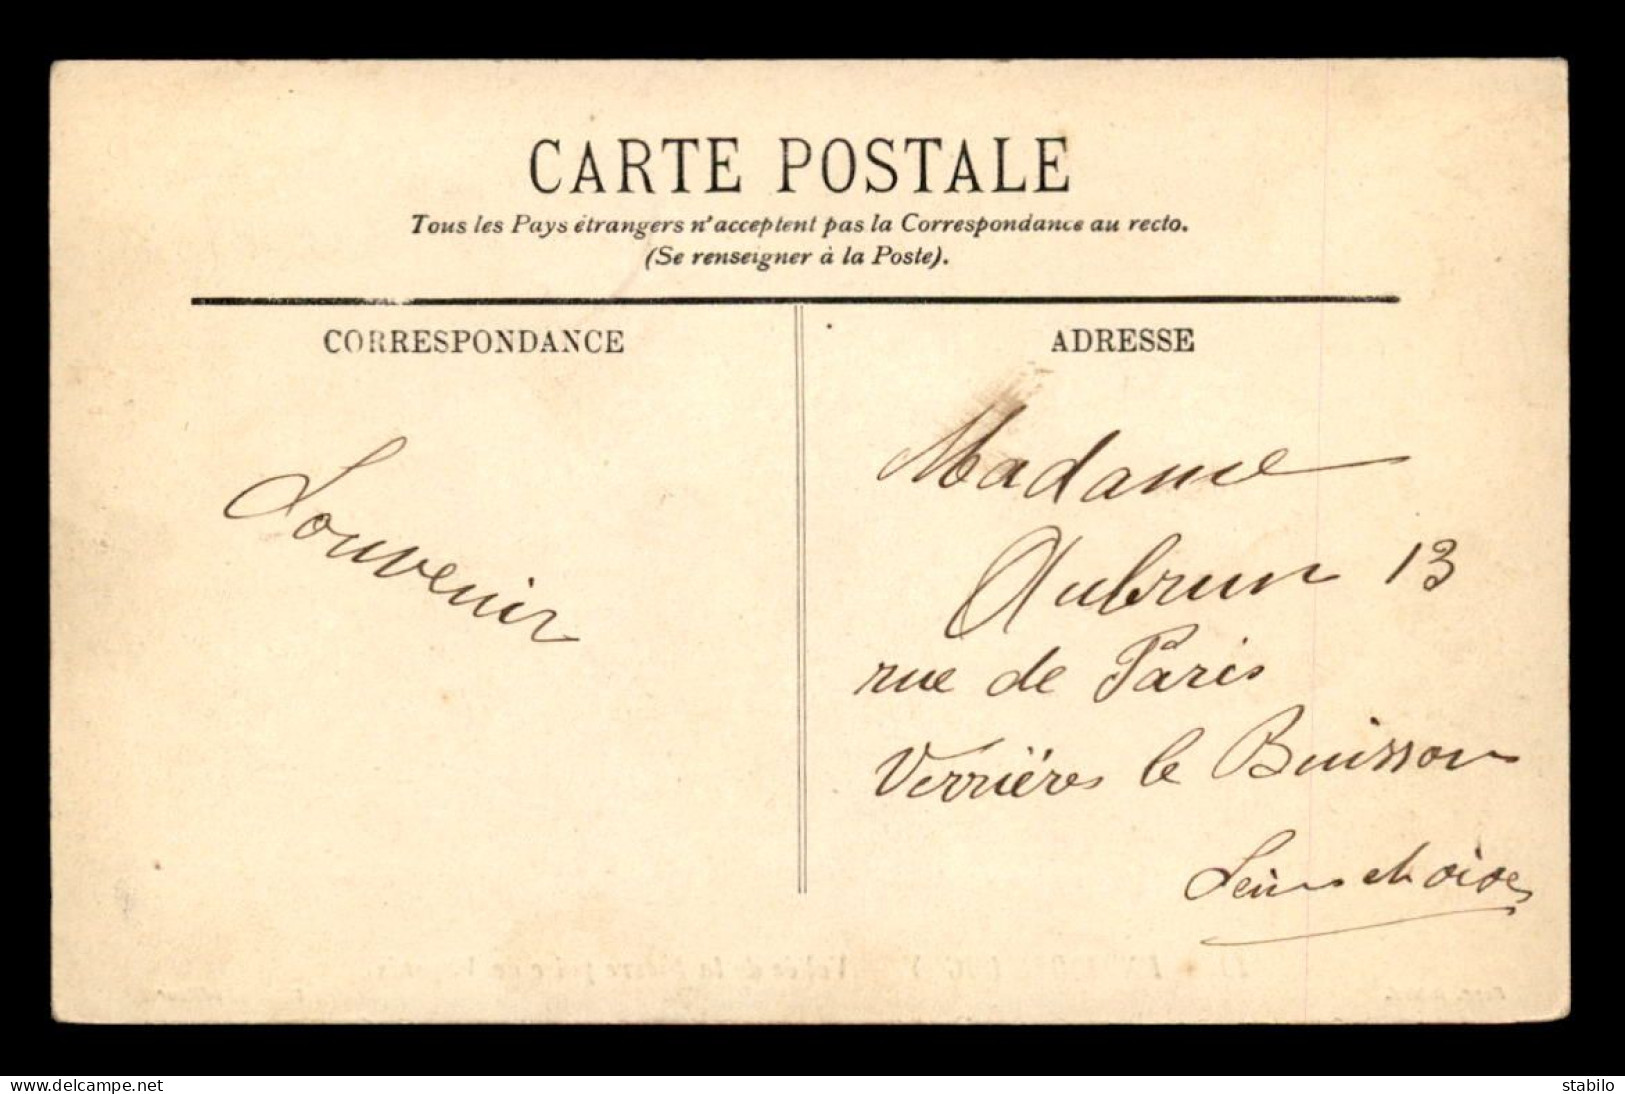 CARTE POSTALE
Tous les Pays étrangers n'acceptent pas la Correspondance au recto.
(Se renseigner à la Poste).
CORRESPONDANCE
Souvenir
ADRESSE
Madame
Aubrun 13
rue de Paris
Verrières le Buisson
Seine et oise
delcampe.net
stabilo